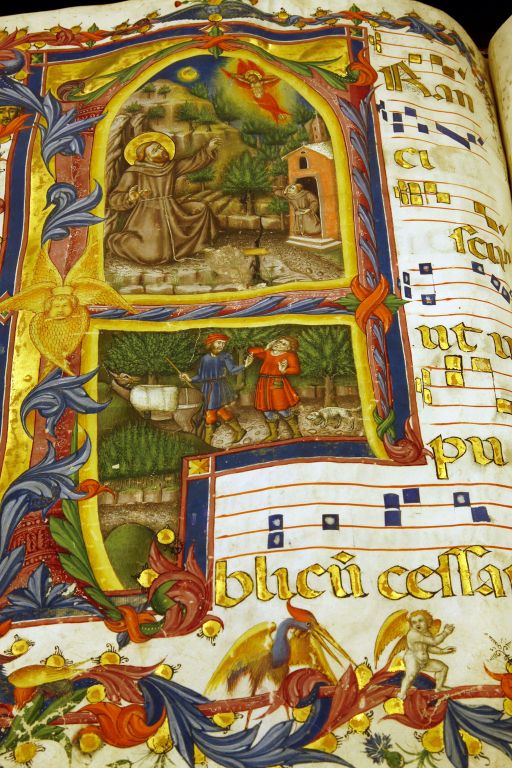 F
Ran
ci
scu
ut
pu
blicū cessa